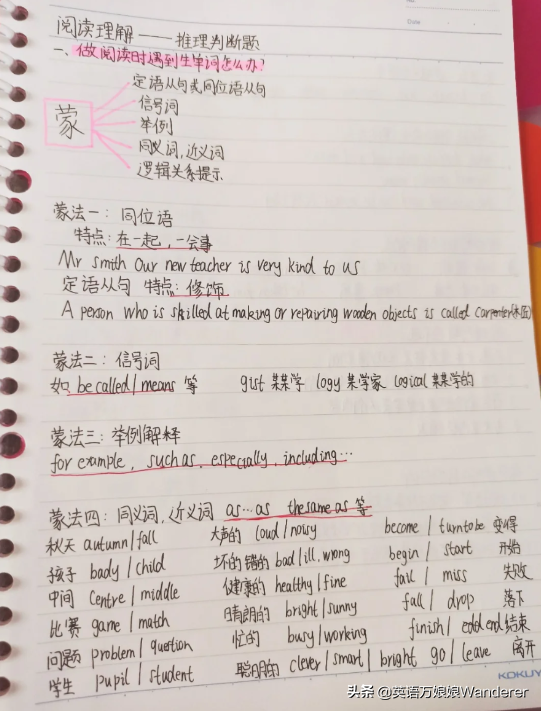 阅读理解——推理判断题
一、做阅读时遇到生单词怎么办?
蒙
定语从句或同位语从句
信号词
举例
同义词,近义词
逻辑关系提示
蒙法一:同位语
特点:在一起,一会事
Mr smith our new teacher is very kind to us
定语从句 特点:修饰
A person who is skilled at making or repairing wooden objects is called carpenter(木匠)
蒙法二:信号词
如 be called/means 等 gist 某某学 logy 某学家 logical 某某学的
蒙法三:举例解释
for example, such as, especially, including...
蒙法四:同义词,近义词 as...as the same as 等
秋天 autumn/fall 大声的 loud/noisy become/turn to be 变得
孩子 bady/child 坏的错的 bad/ill,wrong begin/start 开始
中间 centre/middle 健康的 healthy/fine fail/miss 失败
比赛 game/match 晴朗的 bright/sunny fall/drop 落下
问题 problem/question 忙的 busy/working finish/ end 结束
学生 pupil/student 聪明的 clever/smart/bright go/leave 离开
KOKUYO
头条 @英语万娘娘Wanderer